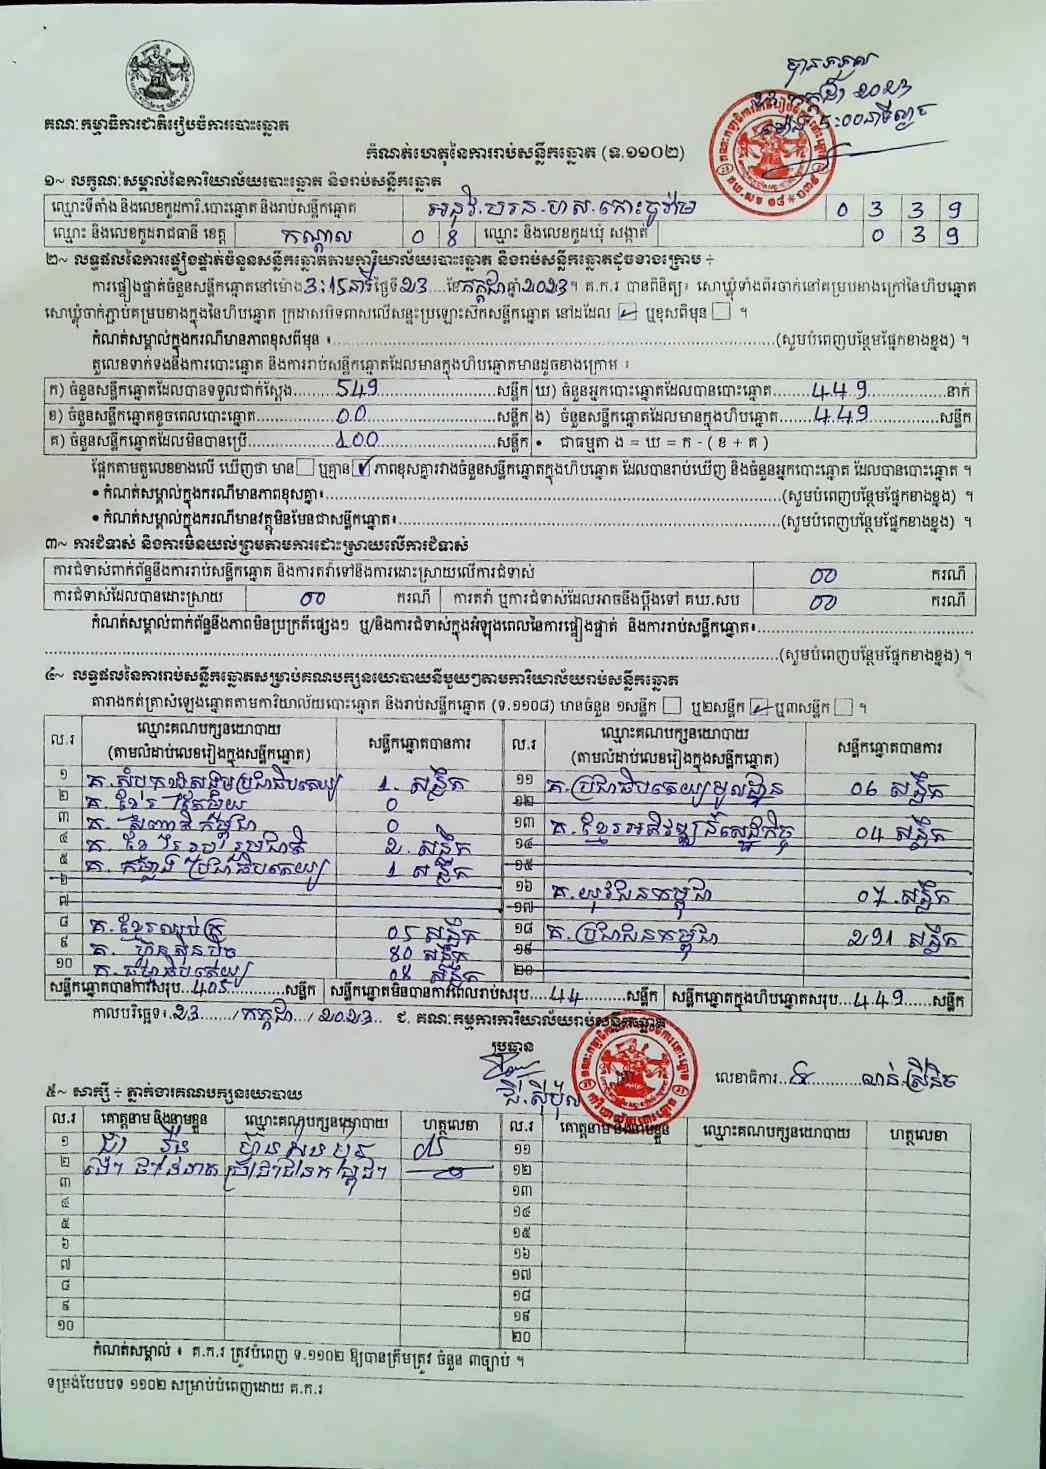 គណៈកម្មាធិការជាតិរៀបចំការបោះឆ្នោត
បានទទួល
23 កក្កដា 2023
ម៉ោង 5:00នាទីល្ងាច
កំណត់ហេតុនៃការរាប់សន្លឹកឆ្នោត (ទ.១១០២)
១~ លក្ខណៈសម្គាល់នៃការិយាល័យបោះឆ្នោត និងរាប់សន្លឹកឆ្នោត
ឈ្មោះទីតាំង និងលេខកូដការិ.បោះឆ្នោត និងរាប់សន្លឹកឆ្នោត 0 3 3 9
ឈ្មោះ និងលេខកូដរាជធានី ខេត្ត កណ្តាល 0 8 ឈ្មោះ និងលេខកូដឃុំ សង្កាត់ 0 3 9
២~ លទ្ធផលនៃការផ្ទៀងផ្ទាត់ចំនួនសន្លឹកឆ្នោតតាមការិយាល័យបោះឆ្នោត និងរាប់សន្លឹកឆ្នោតដូចខាងក្រោម ÷
ការផ្ទៀងផ្ទាត់ចំនួនសន្លឹកឆ្នោតនៅម៉ោង 3:15នាទី ថ្ងៃទី 23 ខែ កក្កដា ឆ្នាំ 2023 ។ គ.ក.រ បានពិនិត្យ៖ សោឃ្លុំទាំងពីរចាក់នៅគម្របខាងក្រៅនៃហិបឆ្នោត
សោឃ្លុំចាក់ភ្ជាប់គម្របខាងក្នុងនៃហិបឆ្នោត ក្រដាសបិទពាសលើសន្ទះប្រឡោះសឹកសន្លឹកឆ្នោត នៅដដែល ☑ ឬខុសពីមុន ☐ ។
កំណត់សម្គាល់ក្នុងករណីមានភាពខុសពីមុន ៖ (សូមបំពេញបន្ថែមផ្នែកខាងខ្នង) ។
តួលេខទាក់ទងនឹងការបោះឆ្នោត និងការរាប់សន្លឹកឆ្នោតដែលមានក្នុងហិបឆ្នោតមានដូចខាងក្រោម ៖
ក) ចំនួនសន្លឹកឆ្នោតដែលបានទទួលជាក់ស្តែង 549 សន្លឹក ឃ) ចំនួនអ្នកបោះឆ្នោតដែលបានបោះឆ្នោត 449 នាក់
ខ) ចំនួនសន្លឹកឆ្នោតខូចពេលបោះឆ្នោត 00 សន្លឹក ង) ចំនួនសន្លឹកឆ្នោតដែលមានក្នុងហិបឆ្នោត 449 សន្លឹក
គ) ចំនួនសន្លឹកឆ្នោតដែលមិនបានប្រើ 100 សន្លឹក • ជាធម្មតា ង = ឃ = ក - ( ខ + គ )
ផ្អែកតាមតួលេខខាងលើ ឃើញថា មាន ☐ ឬគ្មាន ☑ ភាពខុសគ្នារវាងចំនួនសន្លឹកឆ្នោតក្នុងហិបឆ្នោត ដែលបានរាប់ឃើញ និងចំនួនអ្នកបោះឆ្នោត ដែលបានបោះឆ្នោត ។
• កំណត់សម្គាល់ក្នុងករណីមានភាពខុសគ្នា៖ (សូមបំពេញបន្ថែមផ្នែកខាងខ្នង) ។
• កំណត់សម្គាល់ក្នុងករណីមានវត្ថុមិនមែនជាសន្លឹកឆ្នោត៖ (សូមបំពេញបន្ថែមផ្នែកខាងខ្នង) ។
៣~ ការជំទាស់ និងការមិនយល់ព្រមតាមការដោះស្រាយលើការជំទាស់
ការជំទាស់ពាក់ព័ន្ធនឹងការរាប់សន្លឹកឆ្នោត និងការតវ៉ាទៅនឹងការដោះស្រាយលើការជំទាស់ 00 ករណី
ការជំទាស់ដែលបានដោះស្រាយ 00 ករណី ការតវ៉ា ឬការជំទាស់ដែលអាចនឹងប្តឹងទៅ គឃ.សប 00 ករណី
កំណត់សម្គាល់ពាក់ព័ន្ធនឹងភាពមិនប្រក្រតីផ្សេងៗ ឬ/និងការជំទាស់ក្នុងអំឡុងពេលនៃការផ្ទៀងផ្ទាត់ និងការរាប់សន្លឹកឆ្នោត៖
(សូមបំពេញបន្ថែមផ្នែកខាងខ្នង) ។
៤~ លទ្ធផលនៃការរាប់សន្លឹកឆ្នោតសម្រាប់គណបក្សនយោបាយនីមួយៗតាមការិយាល័យរាប់សន្លឹកឆ្នោត
តារាងកត់ត្រាសំឡេងឆ្នោតតាមការិយាល័យបោះឆ្នោត និងរាប់សន្លឹកឆ្នោត (ទ.១១០៨) មានចំនួន ១សន្លឹក ☐ ឬ២សន្លឹក ☑ ឬ៣សន្លឹក ☐ ។
ល.រ ឈ្មោះគណបក្សនយោបាយ (តាមលំដាប់លេខរៀងក្នុងសន្លឹកឆ្នោត) សន្លឹកឆ្នោតបានការ ល.រ ឈ្មោះគណបក្សនយោបាយ (តាមលំដាប់លេខរៀងក្នុងសន្លឹកឆ្នោត) សន្លឹកឆ្នោតបានការ
១ គ.សំបុកឃ្មុំសង្គមប្រជាធិបតេយ្យ 1 សន្លឹក ១១ គ.ប្រជាធិបតេយ្យមូលដ្ឋាន 06 សន្លឹក
២ គ.ខ្មែរតែមួយ 0 ១២
៣ គ. សញ្ជាតិកម្ពុជា 0 ១៣ គ.ខ្មែរអភិវឌ្ឍន៍សេដ្ឋកិច្ច 04 សន្លឹក
៤ គ.ខ្មែររួបរួមជាតិ 2 សន្លឹក ១៤
៥ គ.កម្លាំងប្រជាធិបតេយ្យ 1 សន្លឹក ១៥
៦ ១៦ គ.យុវជនកម្ពុជា 07 សន្លឹក
៧ ១៧
៨ គ.ខ្មែរឈប់ក្រ 05 សន្លឹក ១៨ គ.ប្រជាជនកម្ពុជា 291 សន្លឹក
៩ គ. ហ៊្វុនស៊ិនប៉ិច 80 សន្លឹក ១៩
១០ គ.ធម្មាធិបតេយ្យ 08 សន្លឹក ២០
សន្លឹកឆ្នោតបានការសរុប 405 សន្លឹក សន្លឹកឆ្នោតមិនបានការពេលរាប់សរុប 44 សន្លឹក សន្លឹកឆ្នោតក្នុងហិបឆ្នោតសរុប 449 សន្លឹក
កាលបរិច្ឆេទ៖ 23 / កក្កដា / 2023 ជ. គណៈកម្មការការិយាល័យរាប់សន្លឹកឆ្នោត
ប្រធាន
លេខាធិការ
៥~ សាក្សី ÷ ភ្នាក់ងារគណបក្សនយោបាយ
ល.រ គោត្តនាម និងនាមខ្លួន ឈ្មោះគណបក្សនយោបាយ ហត្ថលេខា ល.រ គោត្តនាម និងនាមខ្លួន ឈ្មោះគណបក្សនយោបាយ ហត្ថលេខា
១ ១១
២ ប្រជាជនកម្ពុជា ១២
៣ ១៣
៤ ១៤
៥ ១៥
៦ ១៦
៧ ១៧
៨ ១៨
៩ ១៩
១០ ២០
កំណត់សម្គាល់ ៖ គ.ក.រ ត្រូវបំពេញ ទ.១១០២ ឱ្យបានត្រឹមត្រូវ ចំនួន ៣ច្បាប់ ។
ទម្រង់បែបបទ ១១០២ សម្រាប់បំពេញដោយ គ.ក.រ